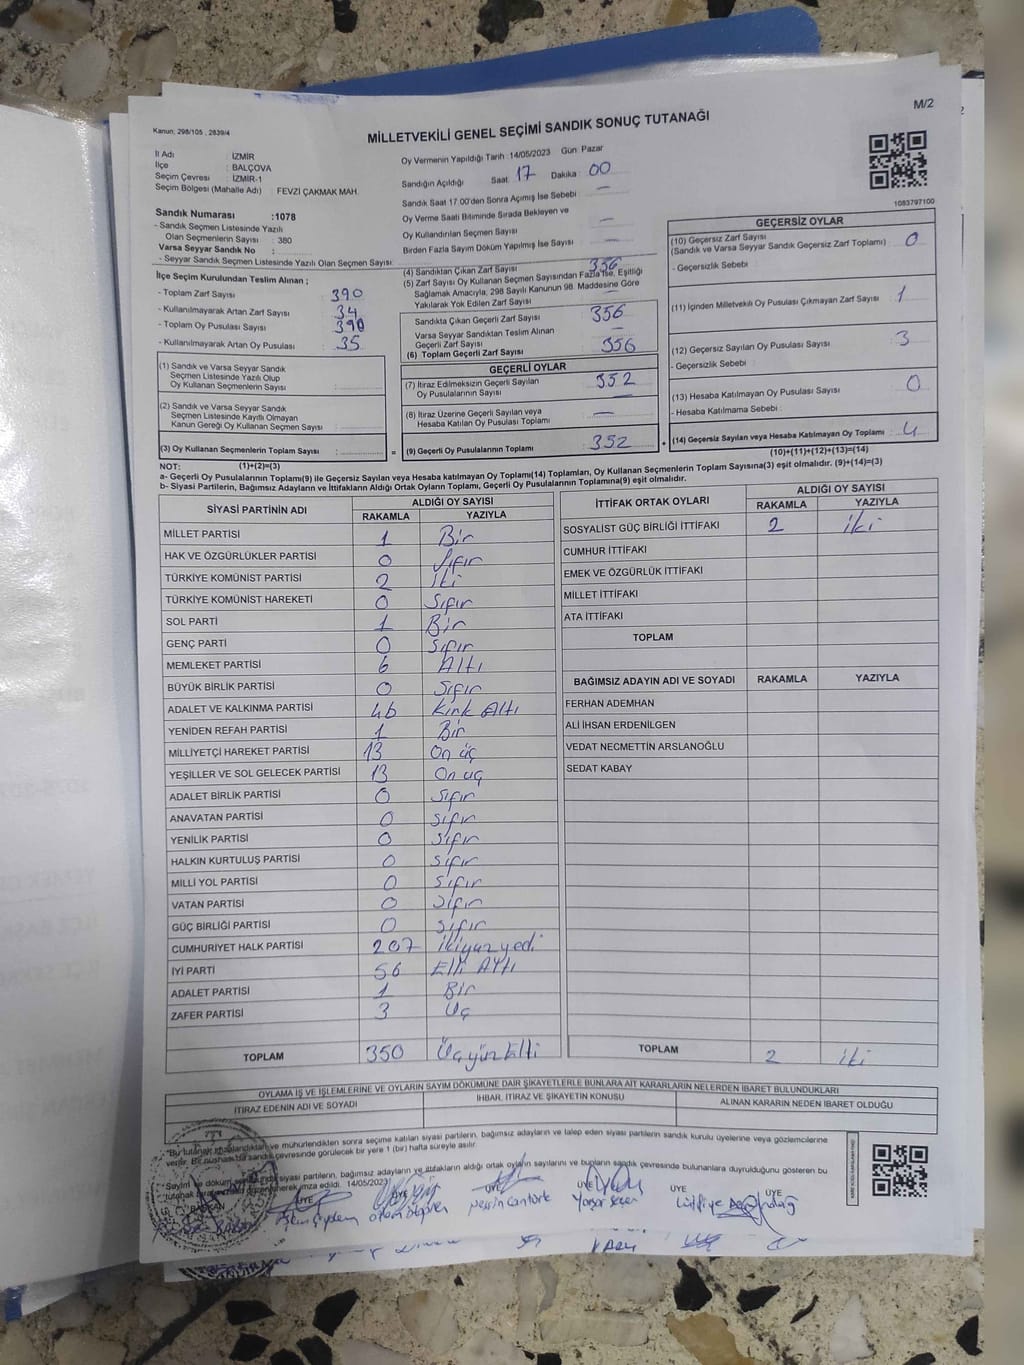 M/2
Kanun; 298/105 , 2839/4
MİLLETVEKİLİ GENEL SEÇİMİ SANDIK SONUÇ TUTANAĞI
İl Adı : İZMİR
İlçe : BALÇOVA
Seçim Çevresi : İZMİR-1
Seçim Bölgesi (Mahalle Adı) : FEVZİ ÇAKMAK MAH.
Sandık Numarası :1078
- Sandık Seçmen Listesinde Yazılı
Olan Seçmenlerin Sayısı : 380
Varsa Seyyar Sandık No :
- Seyyar Sandık Seçmen Listesinde Yazılı Olan Seçmen Sayısı:
Oy Vermenin Yapıldığı Tarih :14/05/2023 Gün: Pazar
Sandığın Açıldığı Saat: 17 Dakika: 00
Sandık Saat 17.00'den Sonra Açımış İse Sebebi : —
Oy Verme Saati Bitiminde Sırada Bekleyen ve
Oy Kullandırılan Seçmen Sayısı : —
Birden Fazla Sayım Döküm Yapılmış İse Sayısı : —
1083797100
İlçe Seçim Kurulundan Teslim Alınan ;
- Toplam Zarf Sayısı : 390
- Kullanılmayarak Artan Zarf Sayısı : 34
- Toplam Oy Pusulası Sayısı : 390
- Kullanılmayarak Artan Oy Pusulası : 35
(1) Sandık ve Varsa Seyyar Sandık
Seçmen Listesinde Yazılı Olup
Oy Kullanan Seçmenlerin Sayısı :
(2) Sandık ve Varsa Seyyar Sandık
Seçmen Listesinde Kayıtlı Olmayan
Kanun Gereği Oy Kullanan Seçmen Sayısı :
(3) Oy Kullanan Seçmenlerin Toplam Sayısı :
(4) Sandıktan Çıkan Zarf Sayısı : 356
(5) Zarf Sayısı Oy Kullanan Seçmen Sayısından Fazla İse, Eşitliği
Sağlamak Amacıyla, 298 Sayılı Kanunun 98. Maddesine Göre
Yakılarak Yok Edilen Zarf Sayısı : —
Sandıkta Çıkan Geçerli Zarf Sayısı : 356
Varsa Seyyar Sandıktan Teslim Alınan
Geçerli Zarf Sayısı : —
(6) Toplam Geçerli Zarf Sayısı : 356
GEÇERLİ OYLAR
(7) İtiraz Edilmeksizin Geçerli Sayılan
Oy Pusulalarının Sayısı : 352
(8) İtiraz Üzerine Geçerli Sayılan veya
Hesaba Katılan Oy Pusulası Toplamı : —
= (9) Geçerli Oy Pusulalarının Toplamı : 352 +
GEÇERSİZ OYLAR
(10) Geçersiz Zarf Sayısı
(Sandık ve Varsa Seyyar Sandık Geçersiz Zarf Toplamı) : 0
- Geçersizlik Sebebi :
(11) İçinden Milletvekili Oy Pusulası Çıkmayan Zarf Sayısı : 1
(12) Geçersiz Sayılan Oy Pusulası Sayısı : 3
- Geçersizlik Sebebi :
(13) Hesaba Katılmayan Oy Pusulası Sayısı : 0
- Hesaba Katılmama Sebebi :
(14) Geçersiz Sayılan veya Hesaba Katılmayan Oy Toplamı : 4
(10)+(11)+(12)+(13)=(14)
NOT: (1)+(2)=(3)
a- Geçerli Oy Pusulalarının Toplamı(9) ile Geçersiz Sayılan veya Hesaba katılmayan Oy Toplamı(14) Toplamları, Oy Kullanan Seçmenlerin Toplam Sayısına(3) eşit olmalıdır. (9)+(14)=(3)
b- Siyasi Partilerin, Bağımsız Adayların ve İttifakların Aldığı Ortak Oyların Toplamı, Geçerli Oy Pusulalarının Toplamına(9) eşit olmalıdır.
SİYASİ PARTİNİN ADI ALDIĞI OY SAYISI
RAKAMLA YAZIYLA
MİLLET PARTİSİ 1 Bir
HAK VE ÖZGÜRLÜKLER PARTİSİ 0 Sıfır
TÜRKİYE KOMÜNİST PARTİSİ 2 İki
TÜRKİYE KOMÜNİST HAREKETİ 0 Sıfır
SOL PARTİ 1 Bir
GENÇ PARTİ 0 Sıfır
MEMLEKET PARTİSİ 6 Altı
BÜYÜK BİRLİK PARTİSİ 0 Sıfır
ADALET VE KALKINMA PARTİSİ 46 Kırk Altı
YENİDEN REFAH PARTİSİ 1 Bir
MİLLİYETÇİ HAREKET PARTİSİ 13 On üç
YEŞİLLER VE SOL GELECEK PARTİSİ 13 On üç
ADALET BİRLİK PARTİSİ 0 Sıfır
ANAVATAN PARTİSİ 0 Sıfır
YENİLİK PARTİSİ 0 Sıfır
HALKIN KURTULUŞ PARTİSİ 0 Sıfır
MİLLİ YOL PARTİSİ 0 Sıfır
VATAN PARTİSİ 0 Sıfır
GÜÇ BİRLİĞİ PARTİSİ 0 Sıfır
CUMHURİYET HALK PARTİSİ 207 ikiyüzyedi
İYİ PARTİ 56 Elli Altı
ADALET PARTİSİ 1 Bir
ZAFER PARTİSİ 3 Üç
TOPLAM 350 Üçyüzelli
İTTİFAK ORTAK OYLARI ALDIĞI OY SAYISI
RAKAMLA YAZIYLA
SOSYALİST GÜÇ BİRLİĞİ İTTİFAKI 2 iki
CUMHUR İTTİFAKI
EMEK VE ÖZGÜRLÜK İTTİFAKI
MİLLET İTTİFAKI
ATA İTTİFAKI
TOPLAM
BAĞIMSIZ ADAYIN ADI VE SOYADI RAKAMLA YAZIYLA
FERHAN ADEMHAN
ALİ İHSAN ERDENİLGEN
VEDAT NECMETTİN ARSLANOĞLU
SEDAT KABAY
TOPLAM 2 iki
OYLAMA İŞ VE İŞLEMLERİNE VE OYLARIN SAYIM DÖKÜMÜNE DAİR ŞİKAYETLERLE BUNLARA AİT KARARLARIN NELERDEN İBARET BULUNDUKLARI
İTİRAZ EDENİN ADI VE SOYADI İHBAR, İTİRAZ VE ŞİKAYETİN KONUSU ALINAN KARARIN NEDEN İBARET OLDUĞU
"Bu tutanak imzalandıktan ve mühürlendikten sonra seçime katılan siyasi partilerin, bağımsız adayların ve talep eden siyasi partilerin sandık kurulu üyelerine veya gözlemcilerine
verilir. Bir nüshası da sandık çevresinde görülecek bir yere 1 (bir) hafta süreyle asılır.
Sayım ve döküm siyasi partilerin, bağımsız adayların ve ittifakların aldığı ortak oyların sayılarını ve bunların sandık çevresinde bulunanlara duyrulduğunu gösteren bu
tutanak imza edildi. 14/05/2023
BAŞKAN ÜYE ÜYE ÜYE ÜYE ÜYE ÜYE